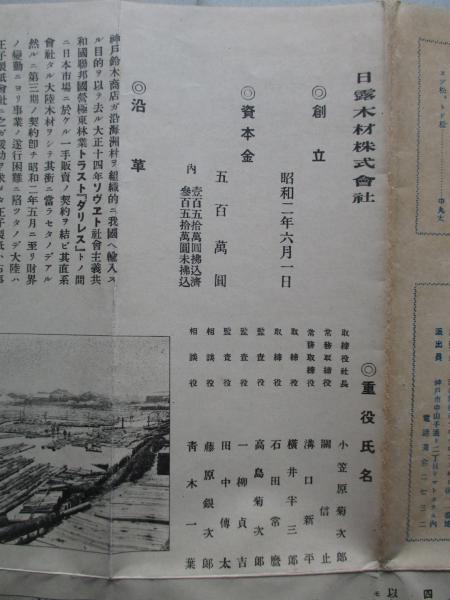 エゾ松、トド松
中丸太
派出員
神戸市中山手通二丁目
電話葺合二七三二
日露木材株式會社
◎創立
昭和二年六月一日
◎資本金
五百萬圓
内 壹百五拾萬圓拂込濟
參百五拾萬圓未拂込
◎重役氏名
取締役社長 小笠原菊次郎
常務取締役 關信止
常務取締役 溝口新平
取締役 橫井半三郎
取締役 石田常麿
監査役 高島菊次郎
監査役 一柳貞吉
監査役 田中傳太
相談役 藤原銀次郎
相談役 靑木一葉
◎沿革
神戸鈴木商店ガ沿海洲材ヲ組織的ニ我國ヘ輸入ス
ル目的ヲ以テ去ル大正十四年ソヴエト社會主義共
和國聯邦國營極東林業トラスト「ダリレス」トノ間
ニ日本市場ニ於ケル一手販賣ノ契約ヲ結ビ其直系
會社タル大陸木材ヲシテ其衝ニ當ラセタノデアル
然ルニ第三期ノ契約卽チ昭和二年五月ニ至リ財界
ノ變動ニヨリ事業ノ遂行困難ニ陷ツタノデ大陸ハ
王子製紙會社ニ之ガ援助ヲ求メタ王子製紙ハ右事
四
以